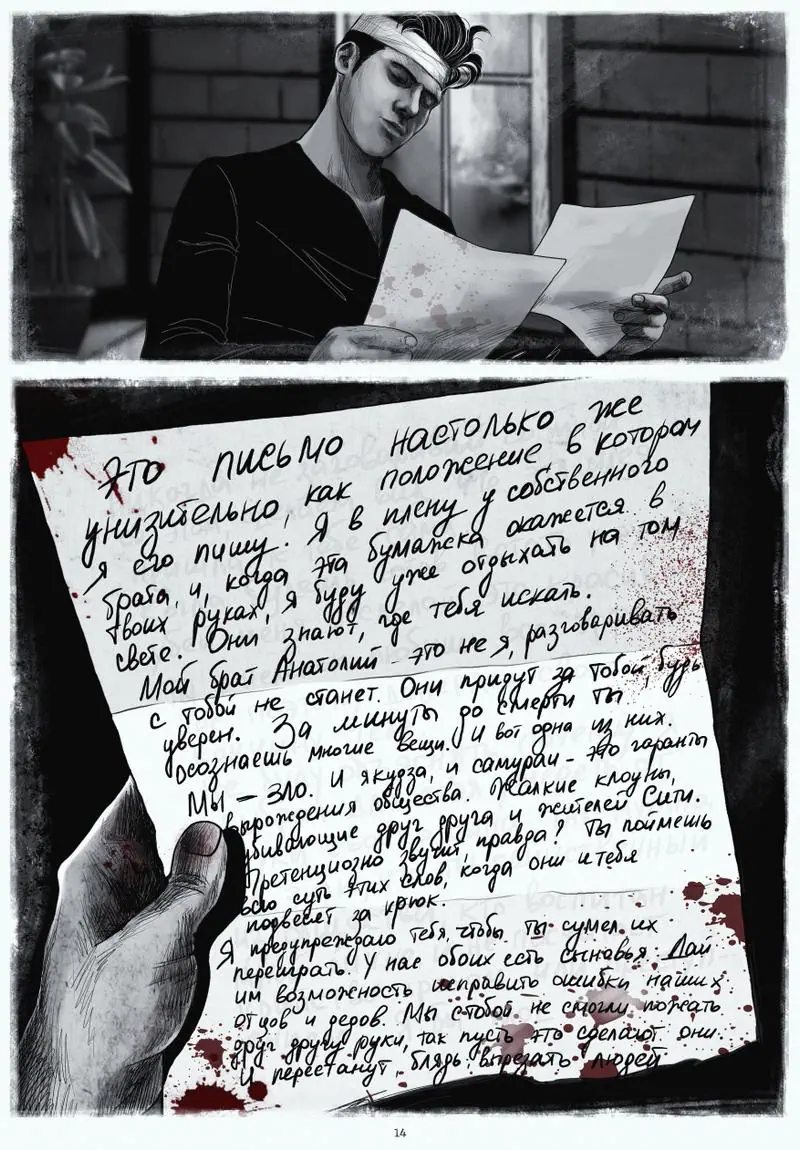 Это письмо настолько же
унизительно, как положение в котором
я его пишу. Я в плену у собственного
брата, и, когда эта бумажка окажется в
твоих руках, я буду уже отдыхать на том
свете. Они знают, где тебя искать.
Мой брат Анатолий - это не я, разговаривать
с тобой не станет. Они придут за тобой, будь
уверен. За минуты до смерти ты
осознаешь многие вещи. И вот одна из них.
Мы - зло. И якудза, и самураи - это гаранты
вырождения общества. Жалкие клоуны,
убивающие друг друга и жителей Сити.
Претенциозно звучит, правда? Ты поймешь
всю суть этих слов, когда они и тебя
подвесят за крюк.
Я предупреждаю тебя, чтобы ты сумел их
переиграть. У нас обоих есть сыновья. Дай
им возможность исправить ошибки наших
отцов и дедов. Мы с тобой не смогли пожать
друг другу руки, так пусть это сделают они.
И перестанут, блядь, вырезать людей
14